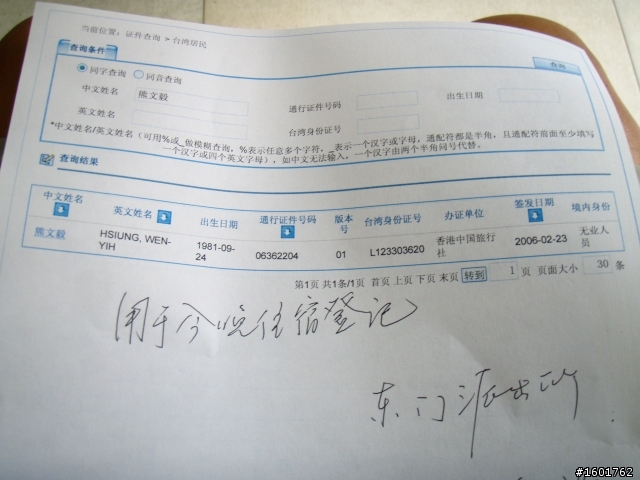 当前位置：证件查询 > 台湾居民
查询条件
查询
同字查询 同音查询
中文姓名 熊文毅 通行证件号码 出生日期
英文姓名 台湾身份证号
*中文姓名/英文姓名（可用%或_做模糊查询，%表示任意多个字符，_表示一个汉字或字母，通配符都是半角，且通配符前面至少填写
一个汉字或四个英文字母），如中文无法输入，一个汉字由两个半角问号代替。
查询结果
中文姓名 英文姓名 出生日期 通行证件号码 版本号 台湾身份证号 办证单位 签发日期 境内身份
熊文毅 HSIUNG, WEN-YIH 1981-09-24 06362204 01 L123303620 香港中国旅行社 2006-02-23 无业人员
第1页 共1条/1页 首页 上页 下页 末页 转到 1 页 页面大小 30 条
用于今晚住宿登记
东门派出所
#1601762